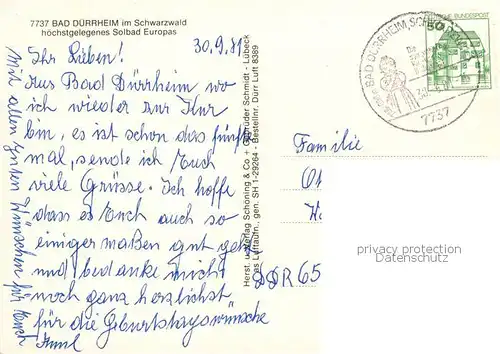 7737 BAD DÜRRHEIM im Schwarzwald
höchstgelegenes Solbad Europas
30.9.81
Ihr Lieben!
Aus Bad Dürrheim wo
ich wieder zur Kur
bin, es ist schon das fünfte
mal, sende ich Euch
viele Grüsse. Ich hoffe
dass es Euch auch so
einiger maßen gut geht
und bedanke mich
noch ganz herzlichst
für die Geburtstagswünsche
Mit allen guten Wünschen für Euch
Herst. u. Verlag Schöning & Co + Gebrüder Schmidt - Lübeck
Das Luftaufn., gen. SH 1-29264 - Bestellnr. Dürr Luft 8389
BAD DÜRRHEIM, SCHWARZW
7737
50
DEUTSCHE BUNDESPOST
Familie
DDR 65
privacy protection
Datenschutz